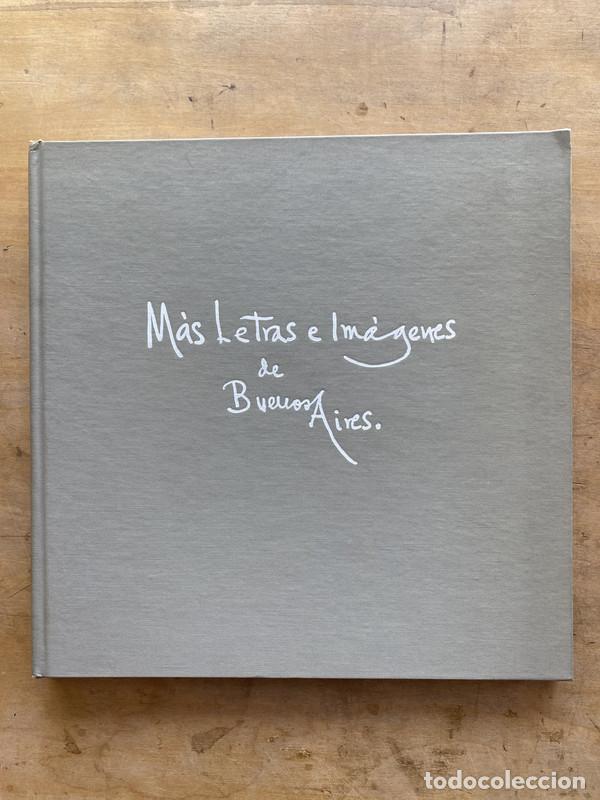 Màs Letras e Imágenes
de
Buenos Aires.
todocoleccion